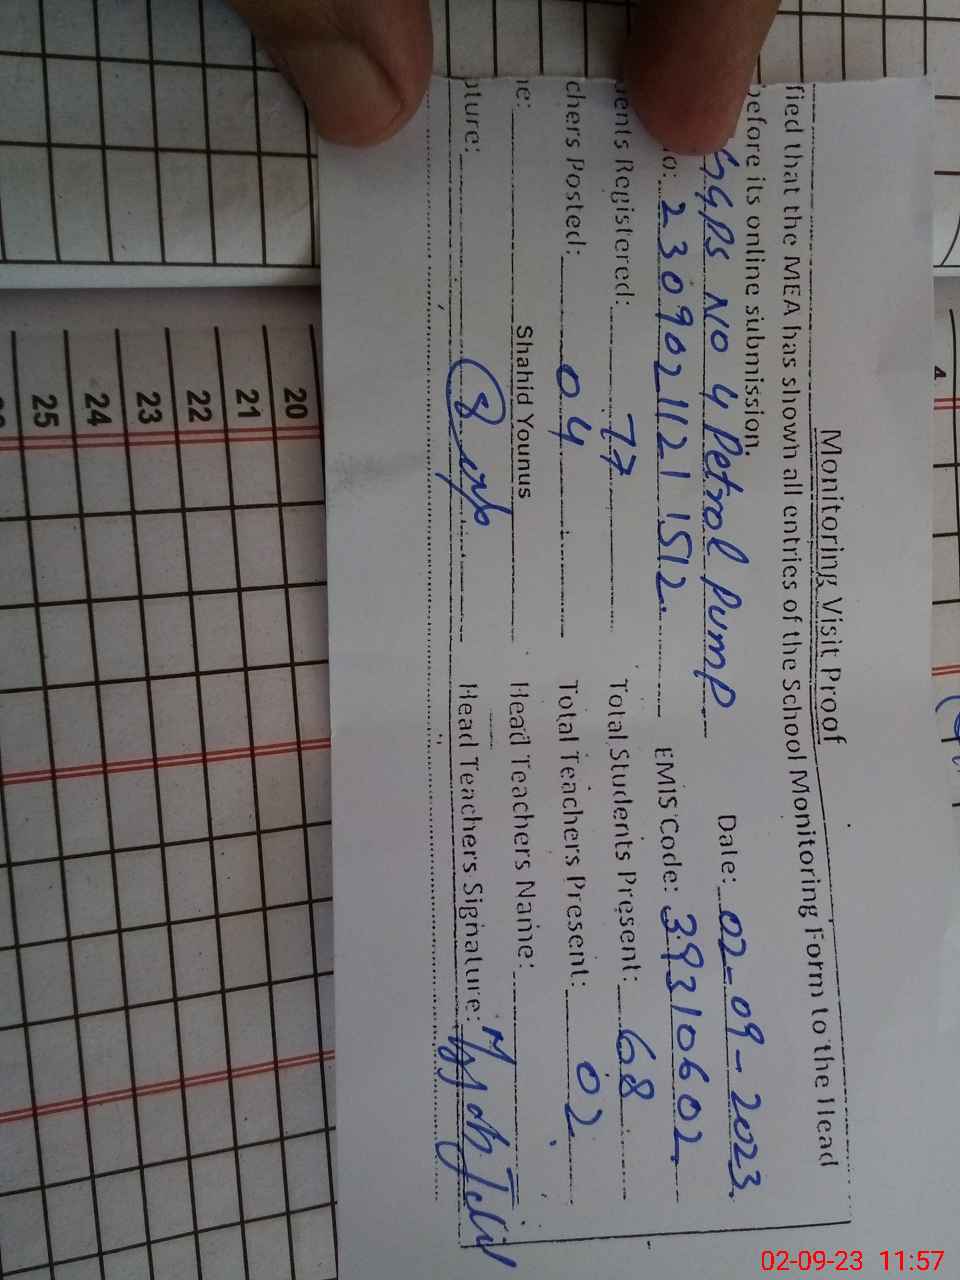 Monitoring Visit Proof
fied that the MEA has shown all entries of the School Monitoring Form to the Head
before its online submission.
GGPS NO 4 Petrol Pump Date: 02-09-2023.
No: 2309021121 1512. EMIS Code: 39310602.
ents Registered: 77 Total Students Present: 68
chers Posted: 04 Total Teachers Present: 02.
ne: Shahid Younus Head Teachers Name:
ture: Head Teachers Signature:
20
21
22
23
24
25
4
02-09-23 11:57